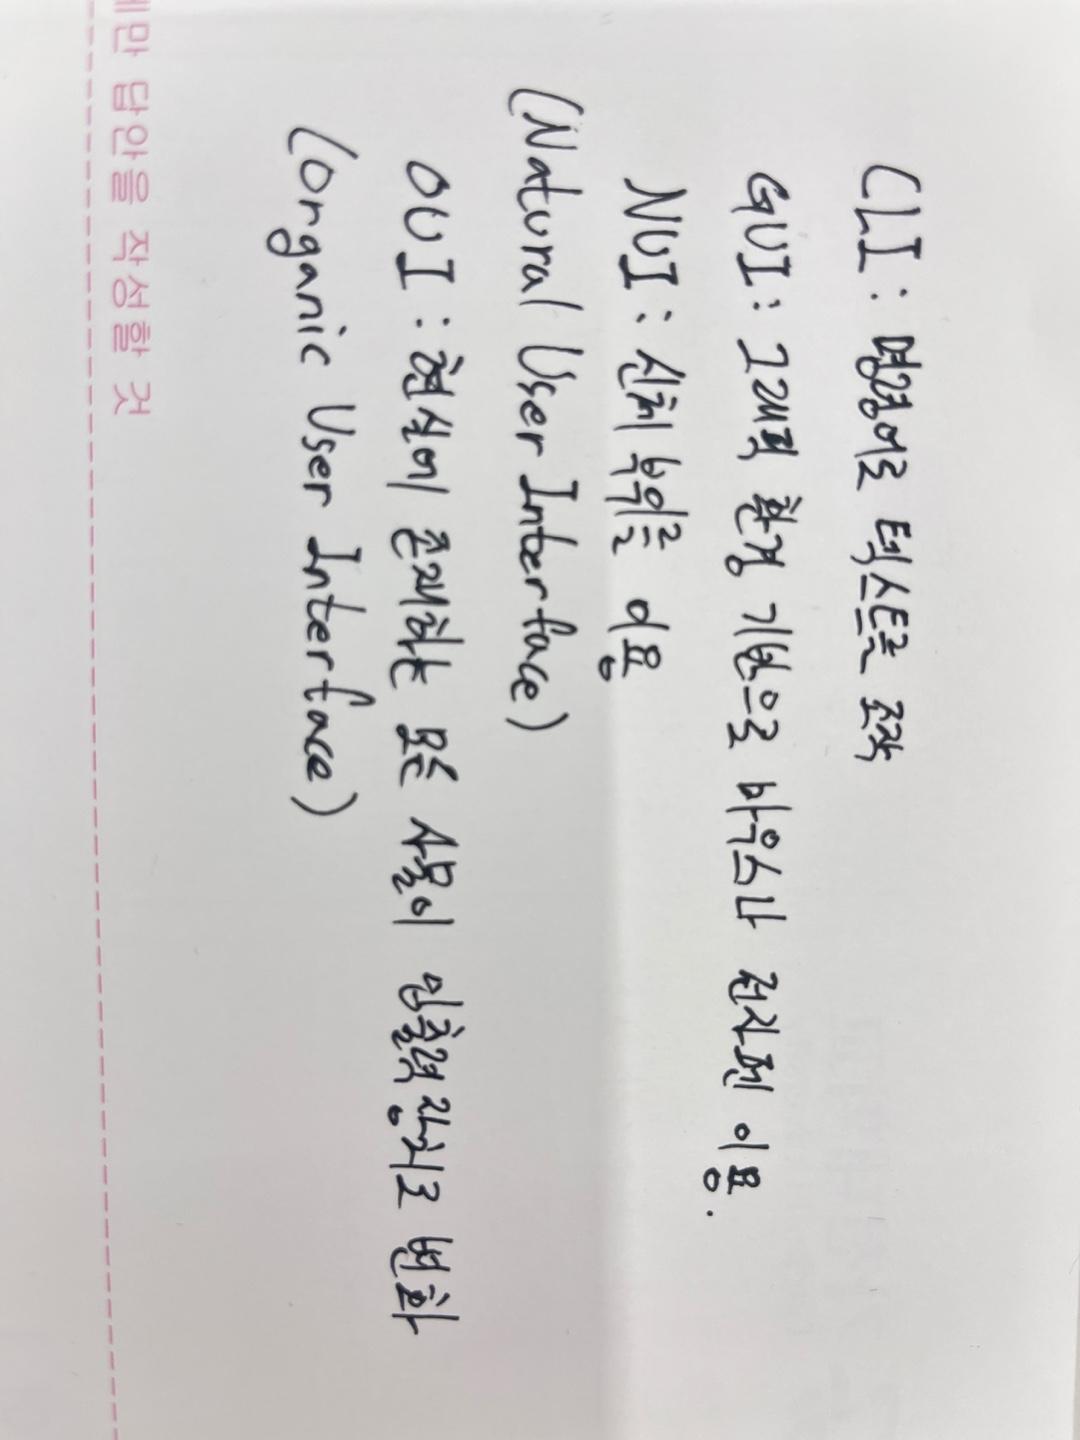 CLI : 명령어로 텍스트로 조작
GUI : 그래픽 환경 기반으로 마우스나 전자펜 이용.
NUI : 신체 부위를 이용
(Natural User Interface)
OUI : 현실에 존재하는 모든 사물이 입출력장치로 변화
(Organic User Interface)
에만 답안을 작성할 것